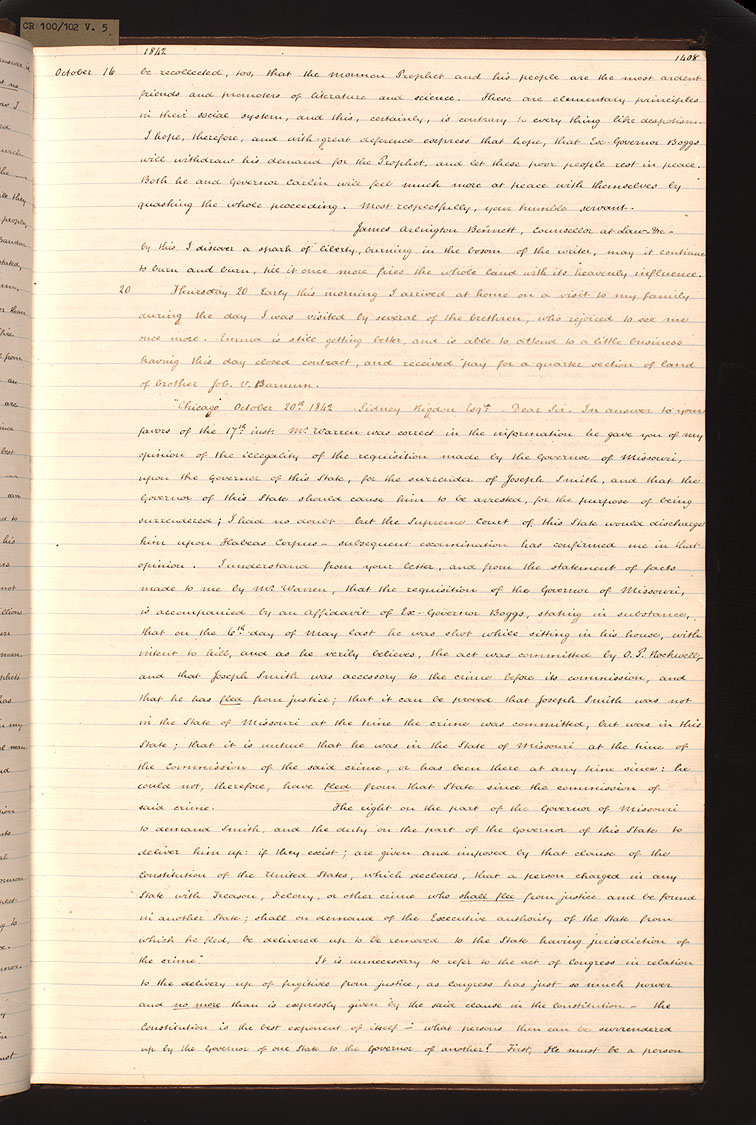 CR 100/102 V. 5
1842
1408
October 16 be recollected, too, that the mormon Prophet and his people are the most ardent
friends and promoters of literature and science. These are elementary principles
in their social system, and this, certainly, is contrary to every thing like despotism.
I hope, therefore, and with great deference express that hope, that Ex-Governor Boggs
will withdraw his demand for the Prophet, and let these poor people rest in peace.
Both he and Governor Carlin will feel much more at peace with themselves by
quashing the whole proceeding. Most respectfully, your humble servant.
James Arlington Bennett, Counsellor at Law &c
by this I discover a spark of liberty, burning in the bosom of the writer, may it continue
to burn and burn, till it once more fires the whole land with its heavenly influence.
20 Thursday 20 Early this morning I arrived at home on a visit to my family
during the day I was visited by several of the brethren, who rejoiced to see me
once more. Emma is still getting better, and is able to attend to a little business
having this day closed contract, and received pay for a quarter section of land
of brother Job. V. Barnum.
"Chicago" October 20th 1842 Sidney Rigdon Esqr. Dear Sir. In answer to your
favors of the 17th inst: Mr. Warren was correct in the information he gave you of my
opinion of the illegality of the requisition made by the Governor of Missouri,
upon the Governor of this State, for the surrender of Joseph Smith, and that the
Governor of this State should cause him to be arrested, for the purpose of being
surrendered; I had no doubt but the Supreme Court of this State would discharge
him upon Habeas Corpus – subsequent examination has confirmed me in that
opinion. I understand from your letter, and from the statement of facts
made to me by Mr. Warren, that the requisition of the Governor of Missouri,
is accompanied by an affidavit of Ex-Governor Boggs, stating in substance,
that on the 6th day of May last he was shot while sitting in his house, with
intent to kill, and as he verily believes, the act was committed by O. P. Rockwell,
and that Joseph Smith was accessory to the crime before its commission, and
that he has fled from justice; that it can be proved that Joseph Smith was not
in the State of Missouri at the time the crime was committed, but was in this
State; that it is untrue that he was in the State of Missouri at the time of
the Commission of the said crime, or has been there at any time since: he
could not, therefore, have fled from that State since the commission of
said crime. The right on the part of the Governor of Missouri
to demand Smith, and the duty on the part of the Governor of this State to
deliver him up: if they exist; are given and imposed by that clause of the
Constitution of the United States, which declares, that a person charged in any
State with Treason, Felony, or other crime who shall flee from justice and be found
in another State; shall on demand of the Executive authority of the State from
which he fled, be delivered up to be removed to the State having jurisdiction of
the crime." It is unnecessary to refer to the act of Congress in relation
to the delivery up of fugitives from justice, as Congress has just so much power
and no more than is expressly given by the said clause in the Constitution – the
Constitution is the best exponent of itself – what persons then can be surrendered
up by the Governor of one State to the Governor of another? First, He must be a person